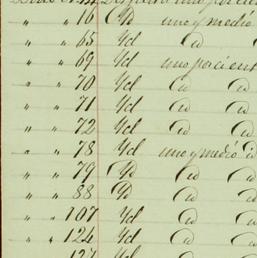 " " 16 Yd uno y medio
" " 65 Yd Id
" " 69 Yd uno por cient
" " 70 Yd Id Id
" " 71 Yd Id Id
" " 72 Yd Id Id
" " 78 Yd uno y medio Id
" " 79 Yd Id Id
" " 88 Yd Id Id
" " 107 Yd Id
" " 124 Yd Id Id